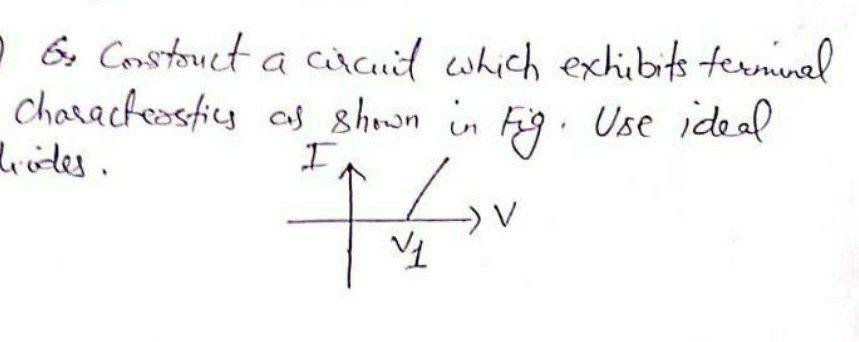 Construct a circuit which exhibits terminal
Characteristics as shown in Fig. Use ideal
diodes.
I
V
V1